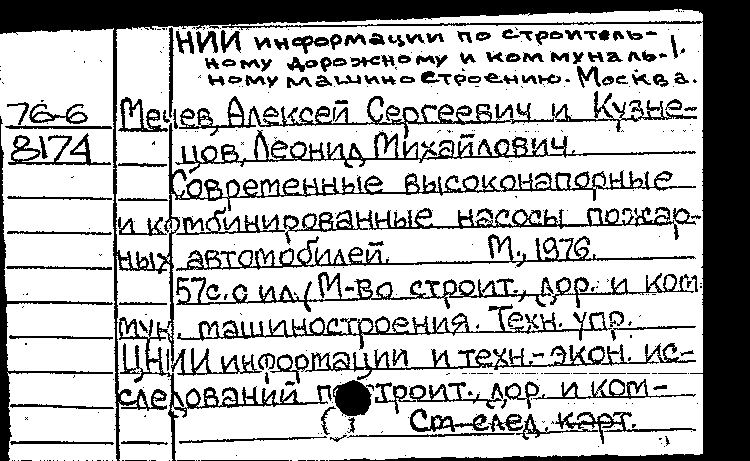 НИИ информации по строитель-
ному дорожному и коммуналь-
ному машиностроению. Москва.
76-6
Мечев, Алексей Сергеевич и Кузне-
8174
цов, Леонид Михайлович.
Современные высоконапорные
и комбинированные насосы пожар-
ных автомобилей. М., 1976.
57с. с ил. (М-во строит., дор. и ком
мун. машиностроения. Техн. упр.
ЦНИИ информации и техн.-экон. ис-
следований по строит., дор. и ком-
См след. карт.